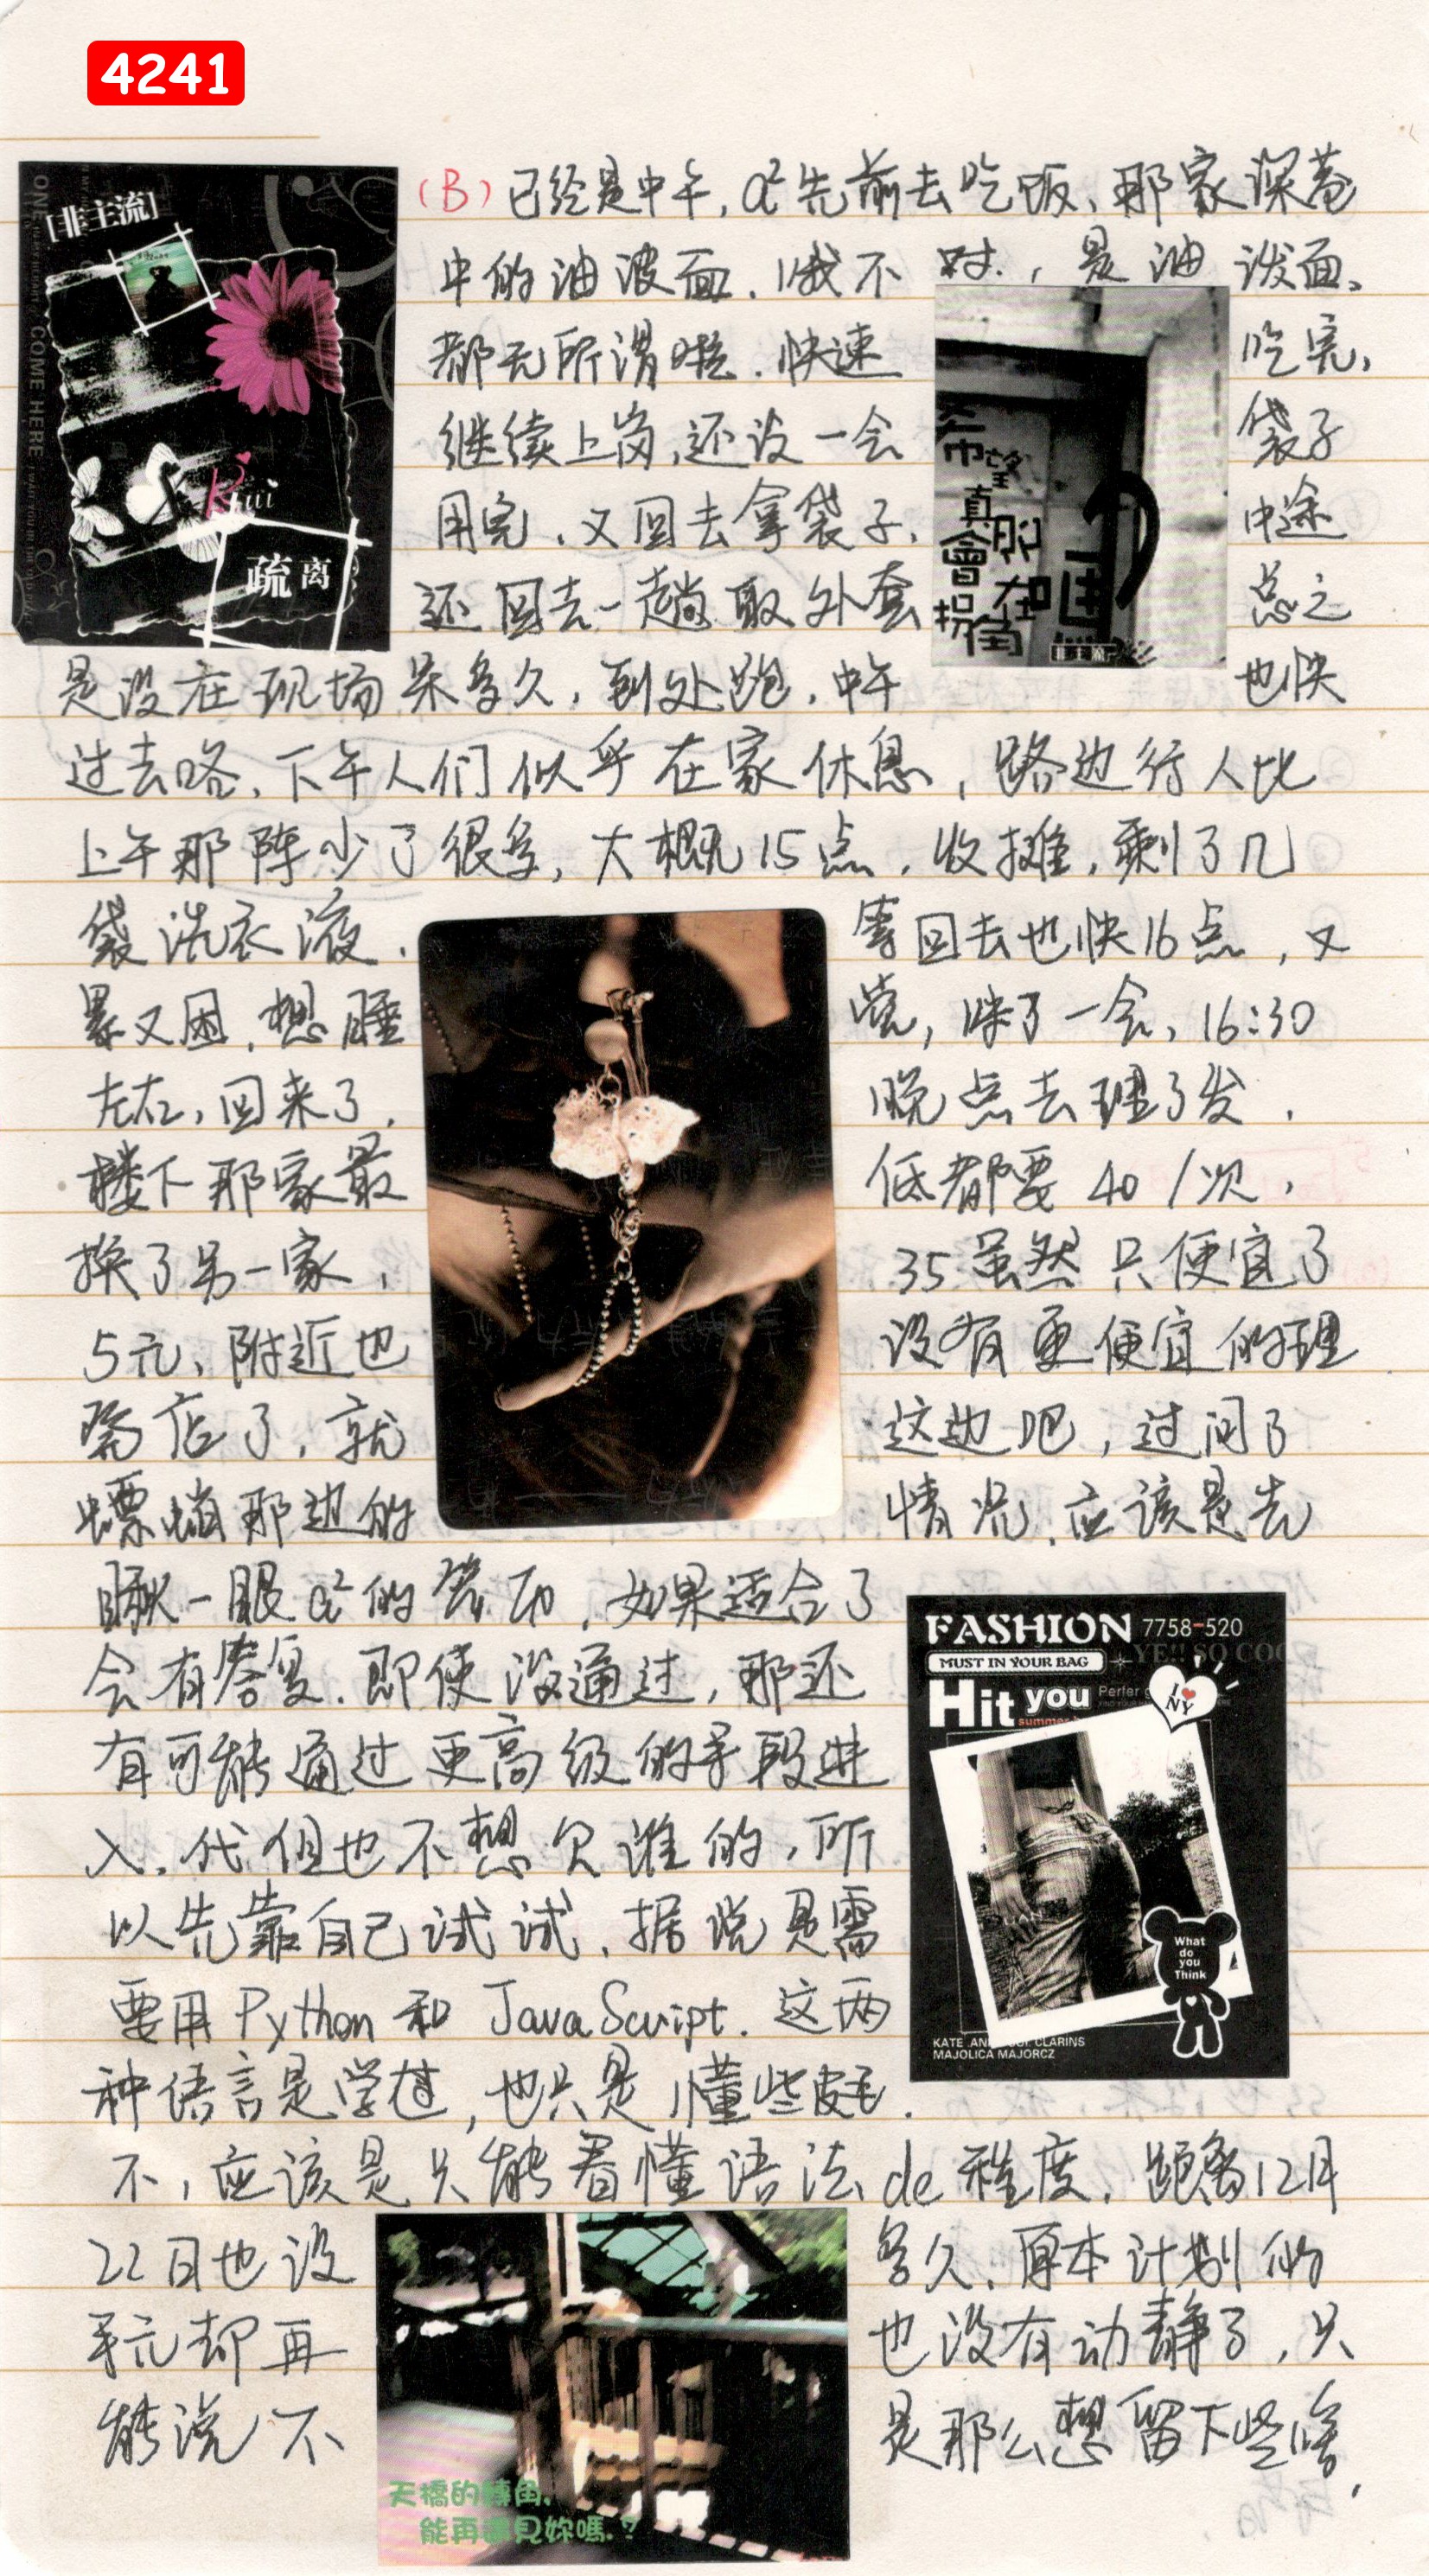 4241
[非主流]
ONE
COME HERE
Rui
疏离
(B)已经是中午，a²先前去吃饭、那家深巷
中的油波面.哦不对.，是油泼面、
都无所谓啦.快速吃完，
继续上岗,还没一会袋子
用完、又回去拿袋子、中途
还回去一趟取外套总之
是没在现场呆多久，到处跑.中午也快
过去咯、下午人们似乎在家休息，路边行人比
上午那阵少了很多，大概15点.收摊，剩了几
袋洗衣液.等回去也快16点，又
累又困.想睡觉，眯了一会、16:30
左右，回来了，晚点去理了发.
楼下那家最低都要40/次，
换了另一家，35虽然只便宜了
5元、附近也没有更便宜的理
发店了，就这边吧，过问了
螵蛸那边的情况、应该是先
瞅一眼a²的，如果适合了
会有答复.即使没通过，那还
有可能通过更高级的手段进
入.代但也不想欠谁的，所
以先靠自己试试、据说是需
要用Python和JavaScript.这两
种语言是学过,也只是懂些皮毛.
不，应该是只能看懂语法de程度.距离12月
22日也没多久、原本计划的
手元却再也没有动静了，只
能说不是那么想留下些啥，
希望真的會在拐角
非主流
FASHION 7758-520
YE!! SO COO
MUST IN YOUR BAG
Hit you
Perfer
summer
I ♥ NY
What do you Think
KATE AND CLARINS
MAJOLICA MAJORCZ
天橋的轉角,
能再遇見妳嗎.?